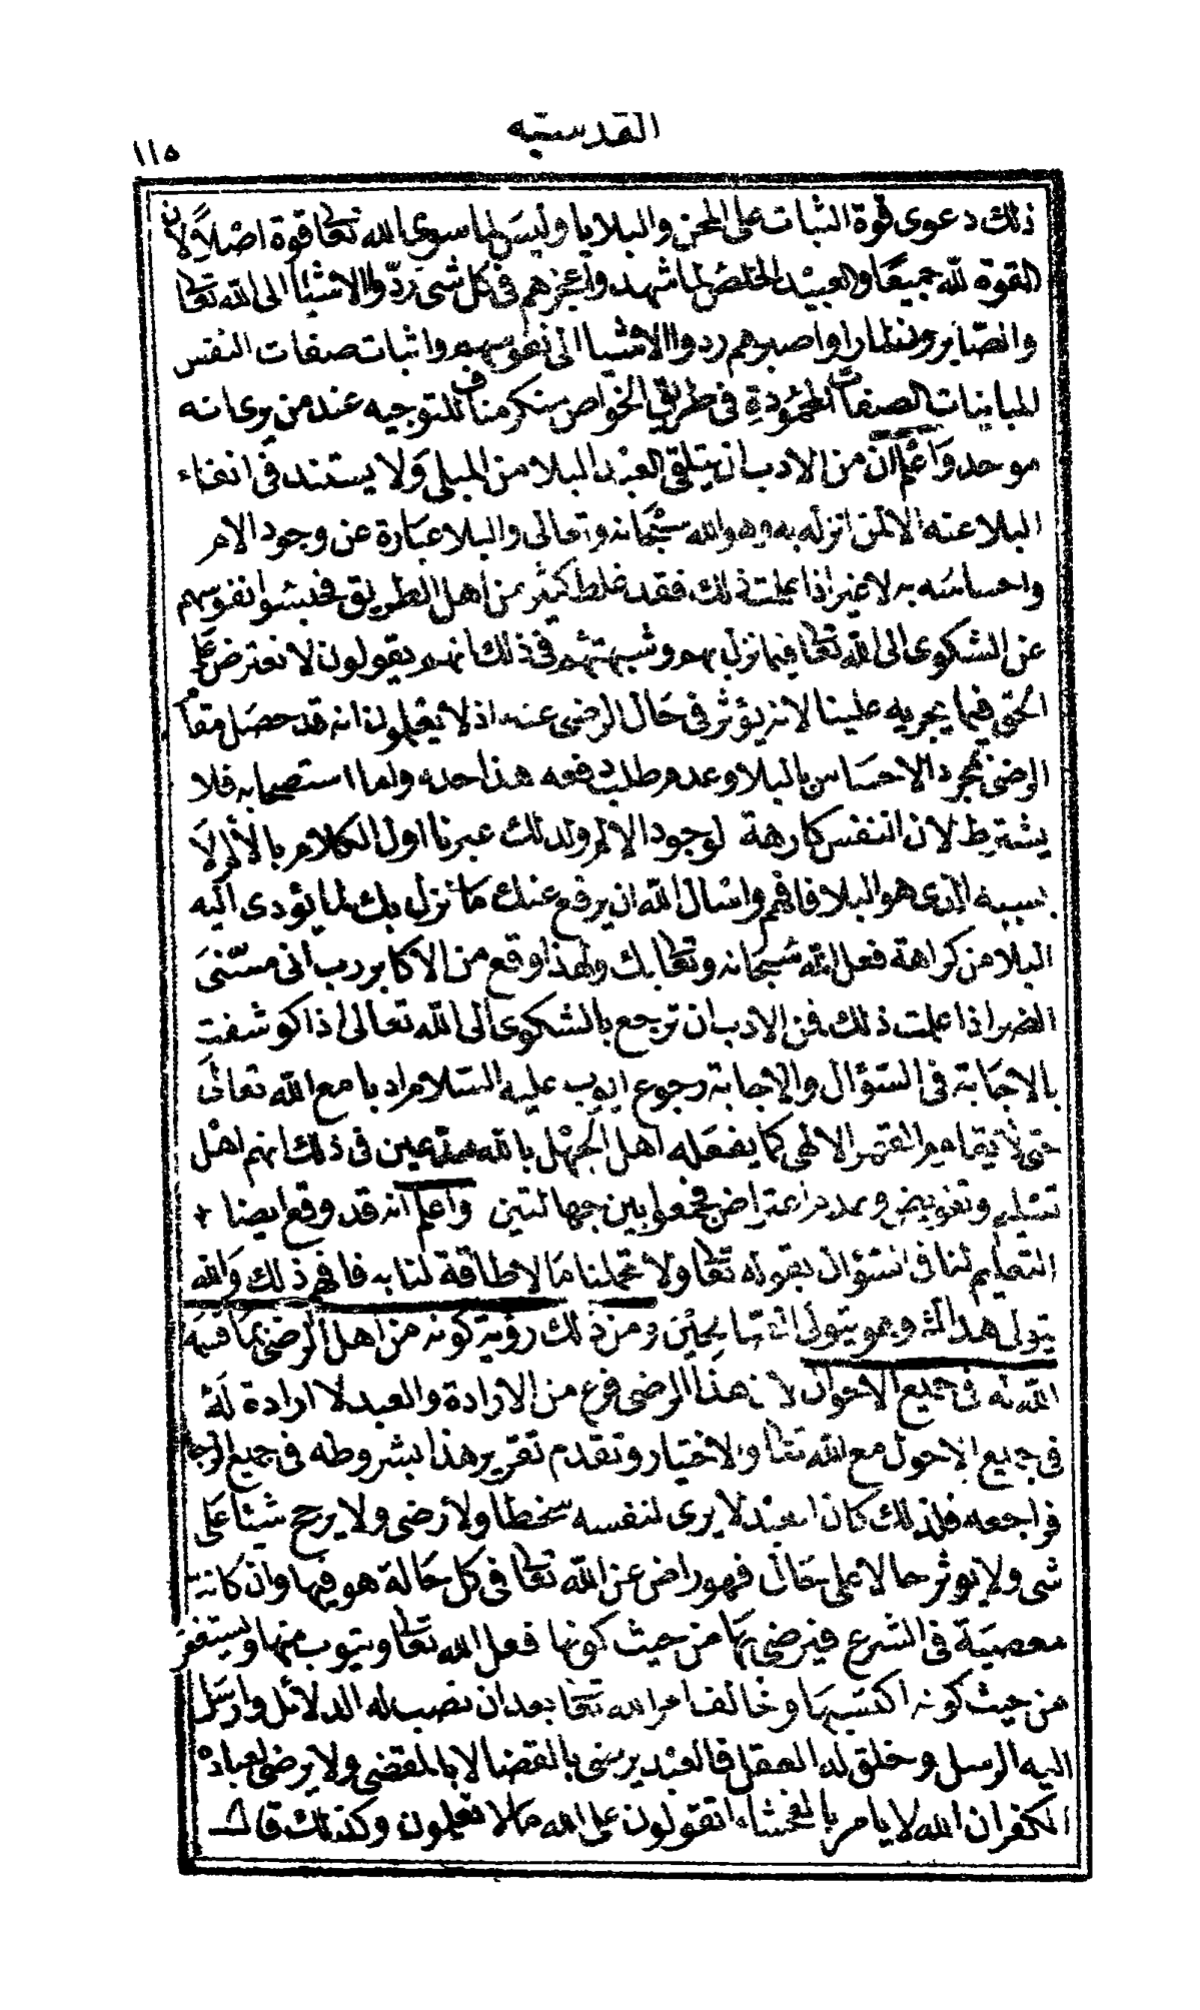 القدسيّه
١١٥
ذلك دعوى قوة الثبات على المحن والبلايا وليس لما سوى الله تعالى قوة اصلاً لان
القوة لله جميعًا والعبيد الخلص لما شهدوا عجزهم فى كل شى ردّوا الاشيا الى الله تعالى
والصّابرون نظروا صبرهم ردوا الاشيا الى نفوسهم واثبات صفات النفس
المباينات الصفات المحمُودَةِ فى طريق الخواص منكر مناف للتوجيه عند من يرى انه
موحد وَاعْلم ان من الادب ان يتلقى العبد البلا من المبلى وَلا يستند فى انفاء
البلا عنه الا لمن انزله به وهو الله سُبْحَانه وتعالى والبلا عبَارة عن وجود الالم
واحساسه به لا غير اذا علمت ذلك فقد غلط كثير من اهل الطريق فحبسُوا نفوسهم
عن الشكوى الى الله تعَالى فيما نزل بهم وشبهتهم فى ذلك انهم يقولون لا نعترض عَلى
الحق فيما يجريه علينا لانه يؤثر فى حَال الرضى عنه اذ لا يعْلمون انه قد حصَل مقام
الرضى بمجرد الاحسَاس بالبلا وعدم طلب دفعه هذا حده واما استصحابه فلا
يشترط لان النفس كارهة لوجود الالم ولذلك عبرنا اول الكلام بالألم لَا
بسببه الذى هو البلا فافهم واسْال الله ان يرفع عنك مَا نزل بك لما يؤدى اليه
البلا من كراهة فعل الله سُبحَانه وتعَالى بك ولهذا وقع من الاكابر رب انى مسّنىَ
الضر اذا علمت ذلك فمن الادب ان ترجع بالشكوى الى الله تعالى اذا كوشفت
بالاجَابة فى السّؤال والاجابة رجوع ايوب عليه السّلام ادبا مع الله تعَالى
حتى لا يقاهر القهر الالهى كما يفعَله اهل الجَهْل بالله مدّعين فى ذلك انهم اهْل
تسْليم وتفويض وعدم اعتراض فجمعوا بين جهالتين وَاعْلم انه قد وقع ايضا
التعليم لنا فى السّؤال بقوله تعَالى ولا تحملنا مَا لا طاقة لنا به فافهم ذلك وَالله
يتولى هداك وهو يتولى الصّالحِيْن ومن ذلك رؤية كونه من اهل الرضى بمَا قسَمَه
الله له فى جميع الاحوال لان هذا الرضى فرع من الارادة والعبد لا ارادة لَهُ
فى جميع الاحول مع الله تعَالى ولا اختيار وتقدم تقرير هذا بشروطه فى جميع
فراجعه فلذلك كان العبد لا يرى لنفسه سخطا ولا رضى ولا يرجح شيئا عَلى
شى ولا يوثر حالا على حَال فهو راض عن الله تعَالى فى كل حَالة هو فيها وان كانت
معصيَة فى الشرع فيرضى بهَا من حيث كونها فعل الله تعَالى ويتوب منها ويستغفر
من حيث كونه اكتسَبهَا وخالف امر الله تعَالى بعد ان نصب له الدلائل وارسَل
اليه الرسل وخلق له العقل فالعَبْد يرضى بالقضا لا بالمقضى ولا يرضى لعباده
الكفر ان الله لا يامر بالفحشاء اتقولون على الله مالا تعلمون وكذلك قال